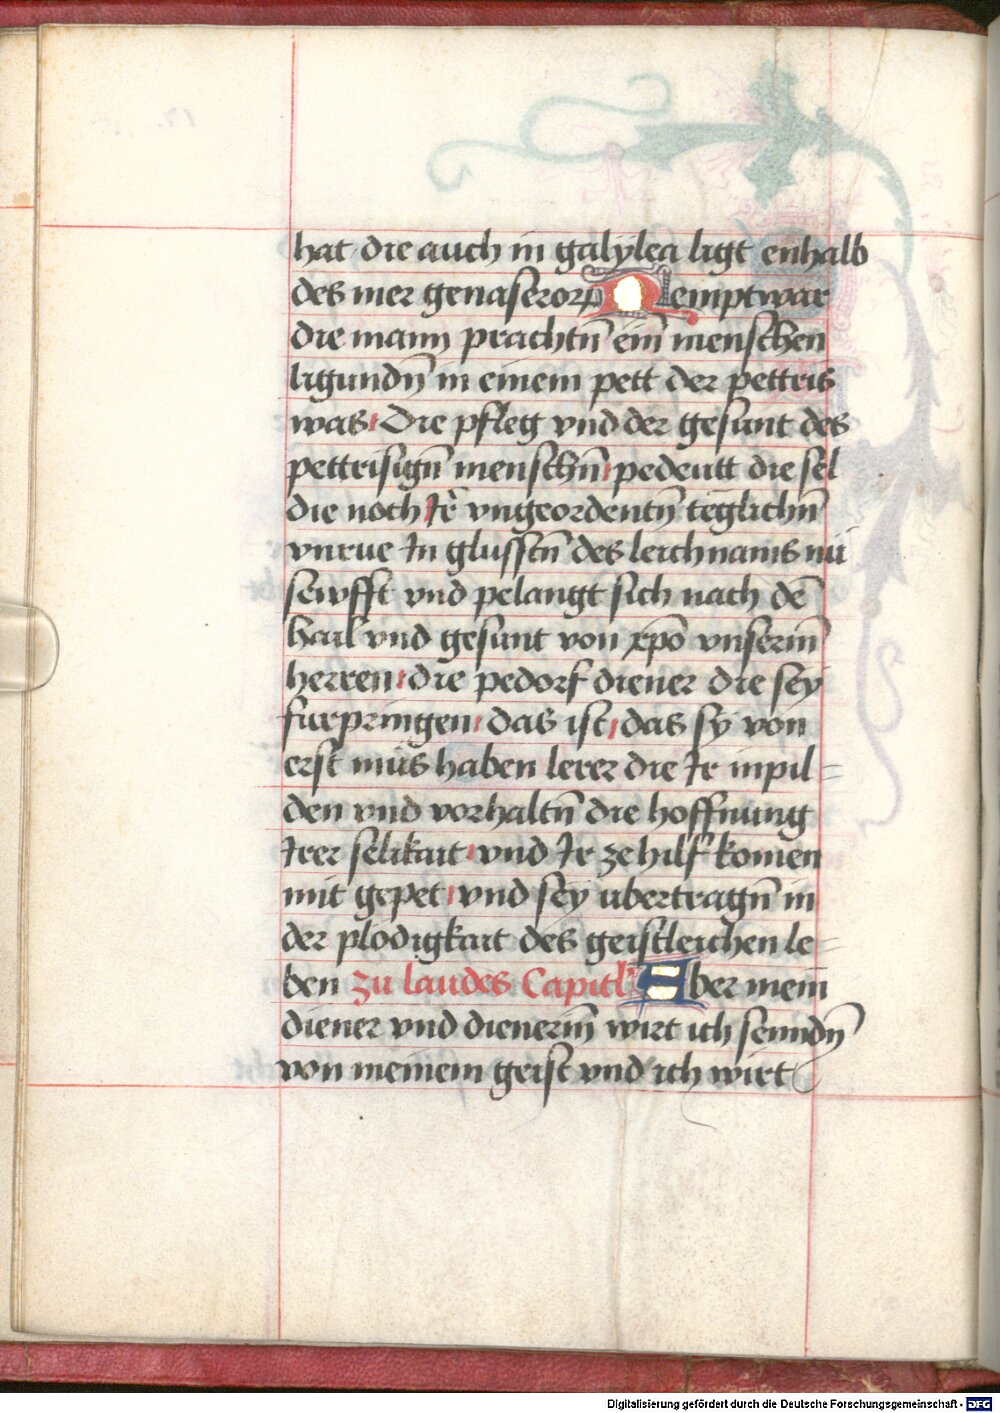 hat die auch in galylea ligt enhalb
des mer genaseroꝛ Nemptwar
die mann prachtn̄ ein̄ menschen
ligundn̄ in einem pett der pettris
was Die pfleg vnd der gesunt des
pettrisign̄ menschn̄ pedeutt die sel
die noch Ir̄ vngeordentn̄ teglichn̄
vnrue In glusstn̄ des leichnams nū
sewfft vnd pelangt sich nach dē
hail vnd gesunt von xp̄o vnserm̄
herren die pedorf diener die sey
furpringen das ist das sy von
erst müs haben lerer die Ir inpil=
den vnd vorhaltn̄ die hoffnung
Irer selikait vnd Ir ze hilf komen
mit gepet vnd sey ubertragn̄ in
der plodigkait des geistleichen le=
ben zu laudes Capitl̄ Aber mein
diener vnd dienerin̄ wirt ich senndn̄
von meinem geist vnd ich wirt
Digitalisierung gefördert durch die Deutsche Forschungsgemeinschaft - DFG